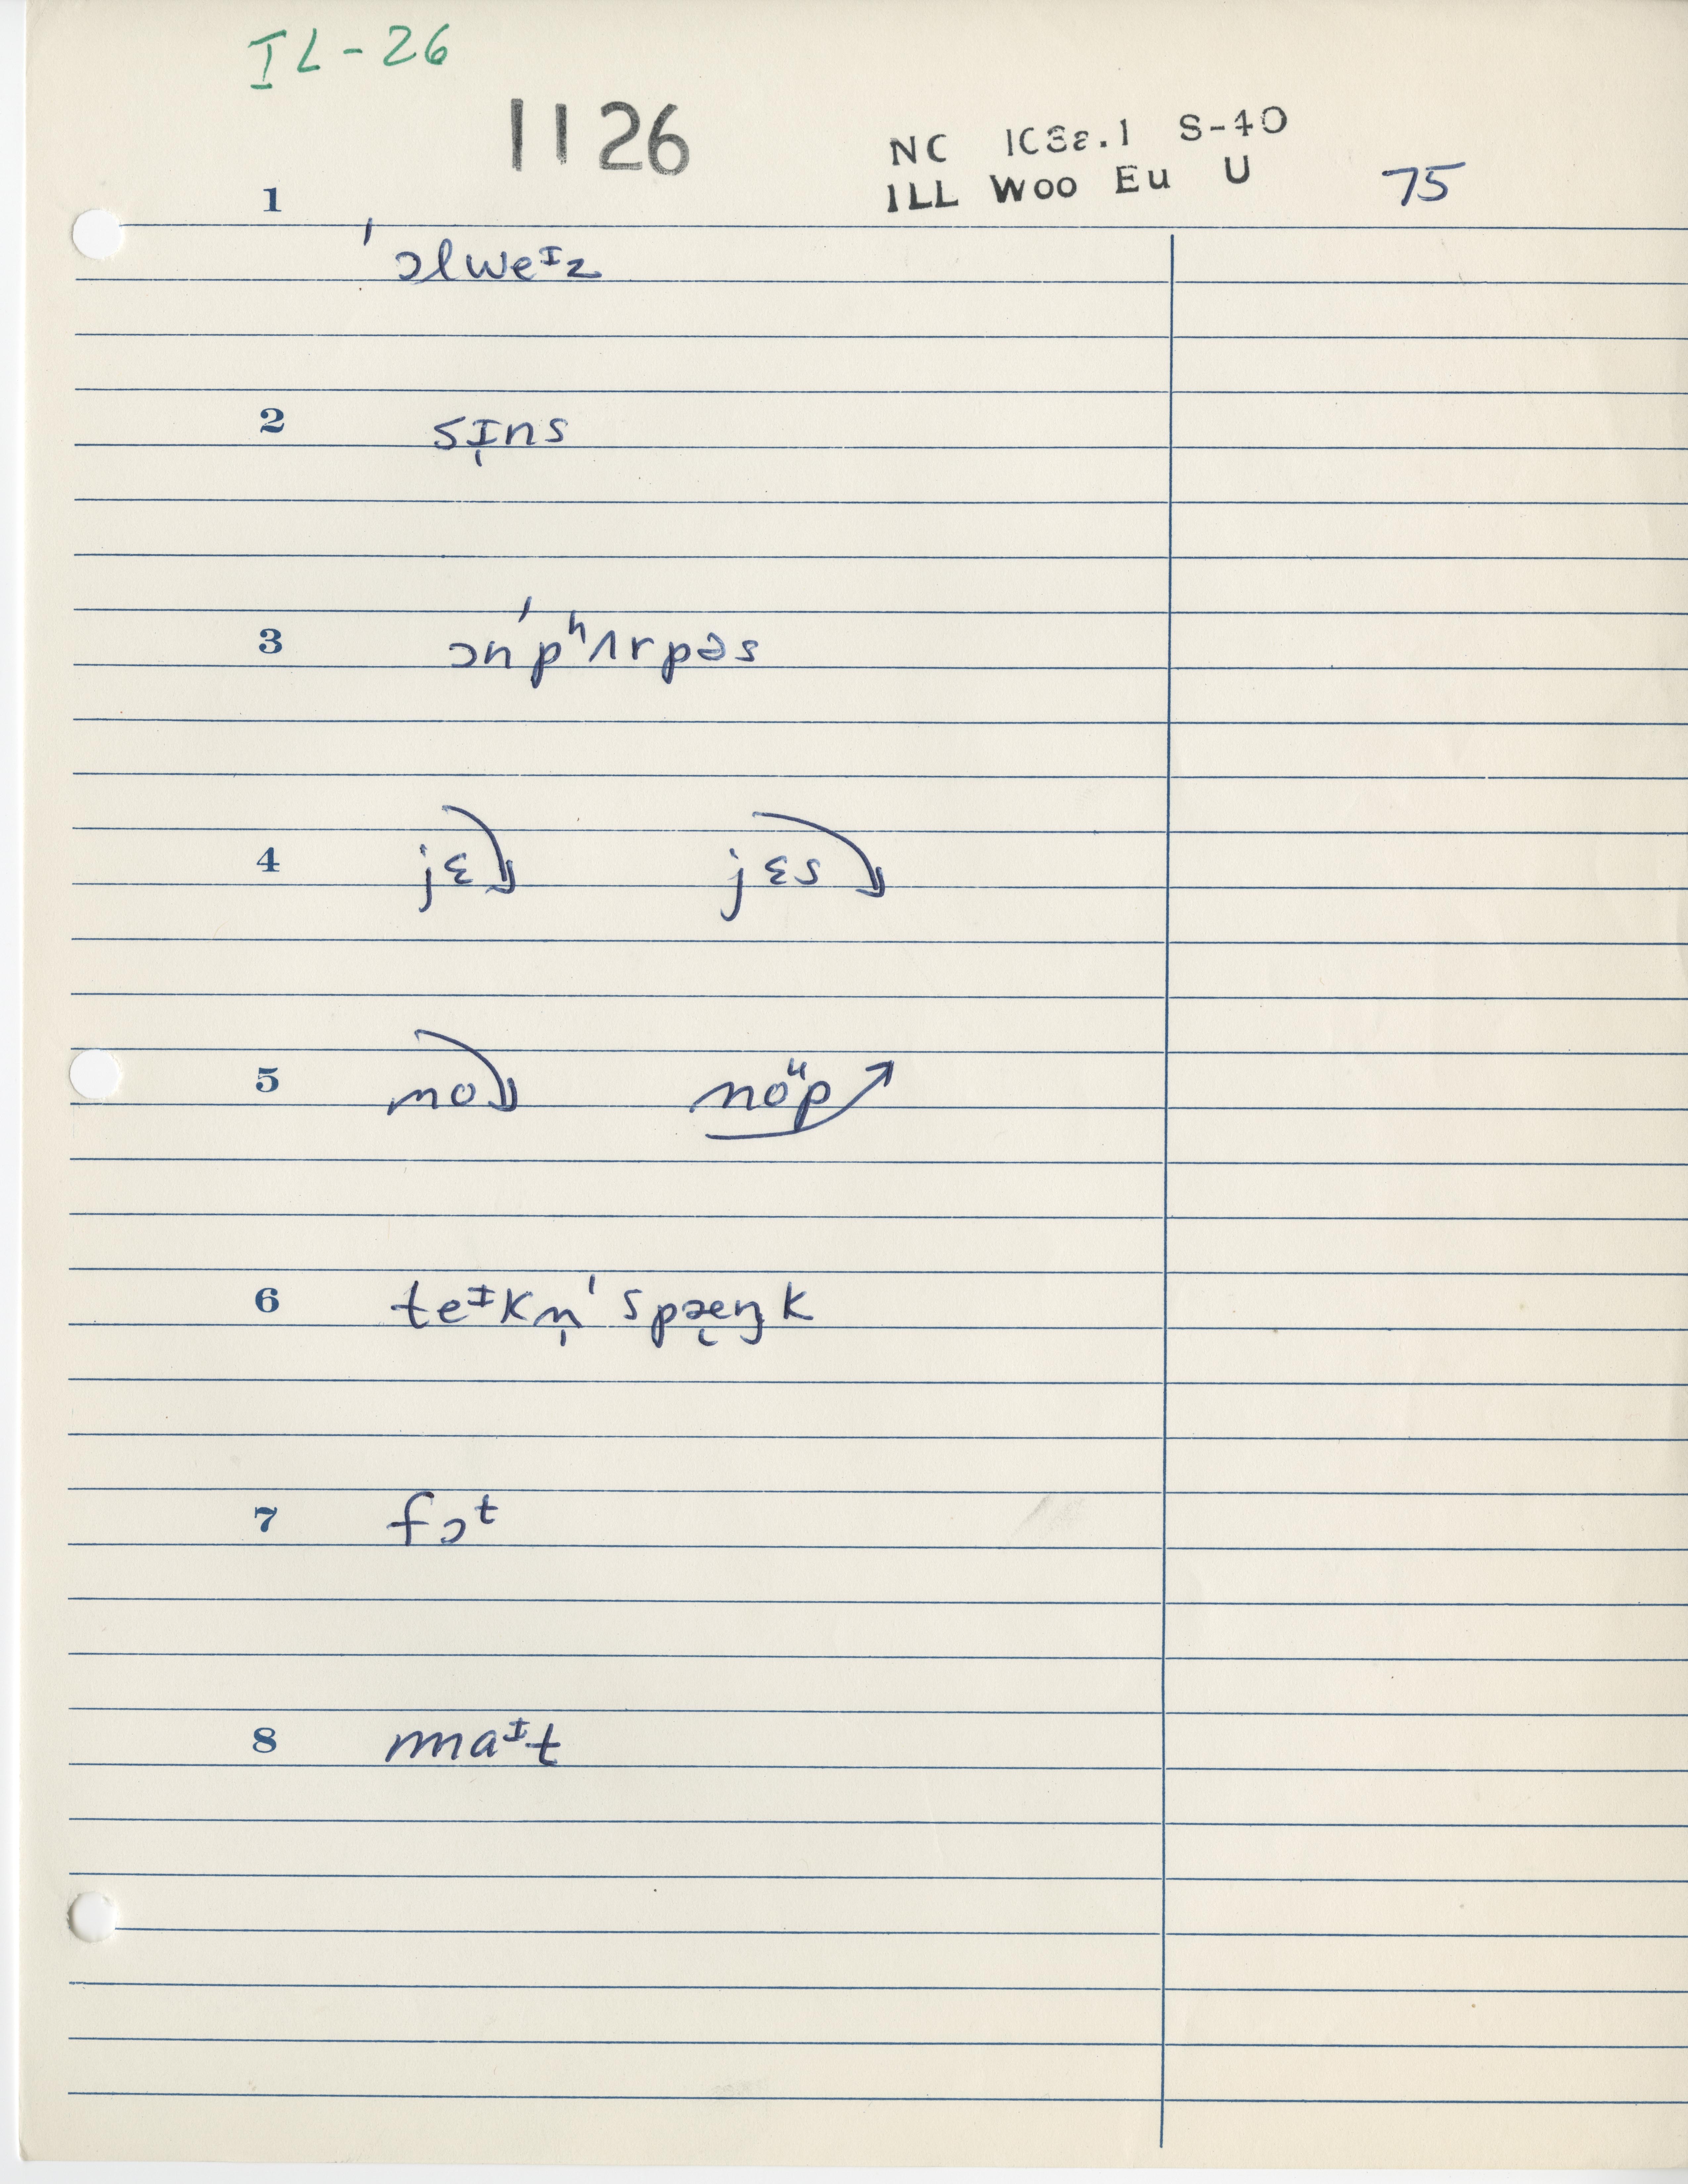 IL-26
1126
NC IC32.1 S-40
ILL Woo Eu U 75
1 ˈɔlweᶦz
2 sɪ̩ns
3 ɔnˈpʰʌrpəs
4 jɛ⤵ jɛs⤵
5 no⤵ noᵘp⤴
6 teᶦkn̩ˈspæŋk
7 fɔᵗ
8 maᶦt